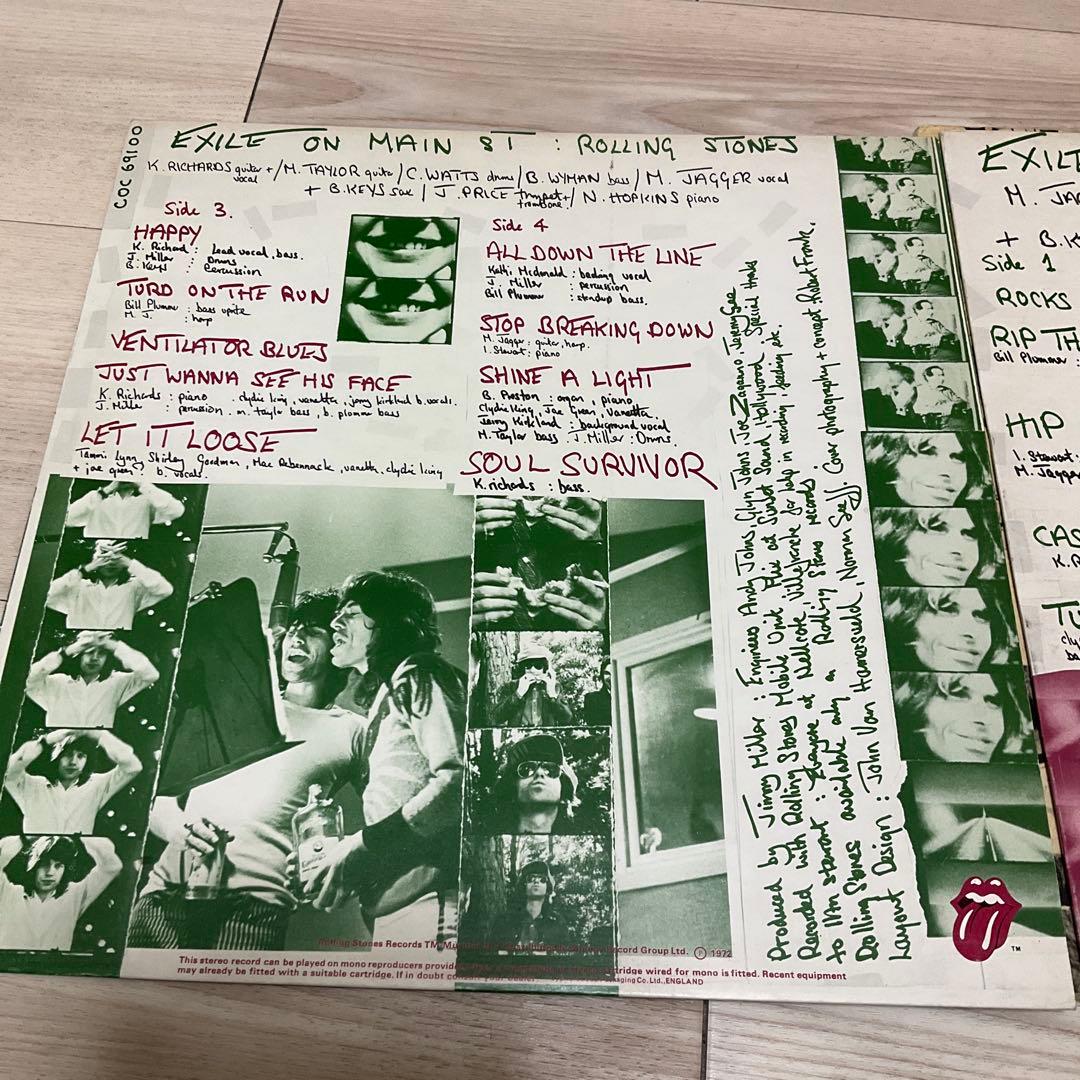 COC 69100
EXILE ON MAIN ST : ROLLING STONES
K. RICHARDS guitar + / M. TAYLOR guitar / C. WATTS drums / B. WYMAN bass / M. JAGGER vocal
vocal
+ B. KEYS sax / J. PRICE trumpet + / N. HOPKINS piano
trombone
Side 3.
HAPPY
K. Richard : Lead vocal, bass.
J. Miller : Drums
B. Keys : Percussion
TURD ON THE RUN
Bill Plummer : bass uprite
M. J. : harp
VENTILATOR BLUES
JUST WANNA SEE HIS FACE
K. Richards : piano . clydie king, vanetta, jerry kirkland b. vocals.
J. Miller : percussion . m. taylor bass, b. plummer bass
LET IT LOOSE
Tammi Lynn, Shirley Goodman, Mac Rebennack, vanetta, clydie king
+ joe green b. vocals.
Side 4
ALL DOWN THE LINE
Kathi Mcdonald : backing vocal
J. Miller : percussion
Bill Plummer : standup bass.
STOP BREAKING DOWN
M. Jagger : guitar, harp.
I. Stewart : piano
SHINE A LIGHT
B. Preston : organ, piano
Clydie King, Joe Green, Vanetta.
Jerry Kirkland : background vocal
M. Taylor bass . J. Miller : Drums.
SOUL SURVIVOR
K. richards : bass.
Produced by Jimmy Miller : Engineers Andy Johns, Glyn Johns, Joe Zagarino, Jeremy Gee
Recorded with Rolling Stones Mobile Unit Plus at Sunset Sound, Hollywood. Special thanks
to IAN stewart : at Nellcote, Villefranche for help in recording, feeding etc.
Rolling Stones available only on Rolling Stones records.
Layout Design : John Van Hamersveld, Norman Seeff. Cover photography + concept Robert Frank.
Rolling Stones Records TM Record Group Ltd. Ⓟ 1972
This stereo record can be played on mono reproducers provided cartridge wired for mono is fitted. Recent equipment
may already be fitted with a suitable cartridge. If in doubt consult your dealer. Packaging Co. Ltd., ENGLAND
TM
EXILE
M. JAG
+ B. K
Side 1
ROCKS
RIP TH
Bill Plummer :
HIP
I. Stewart :
M. Jagger
CAS
K. R
TU